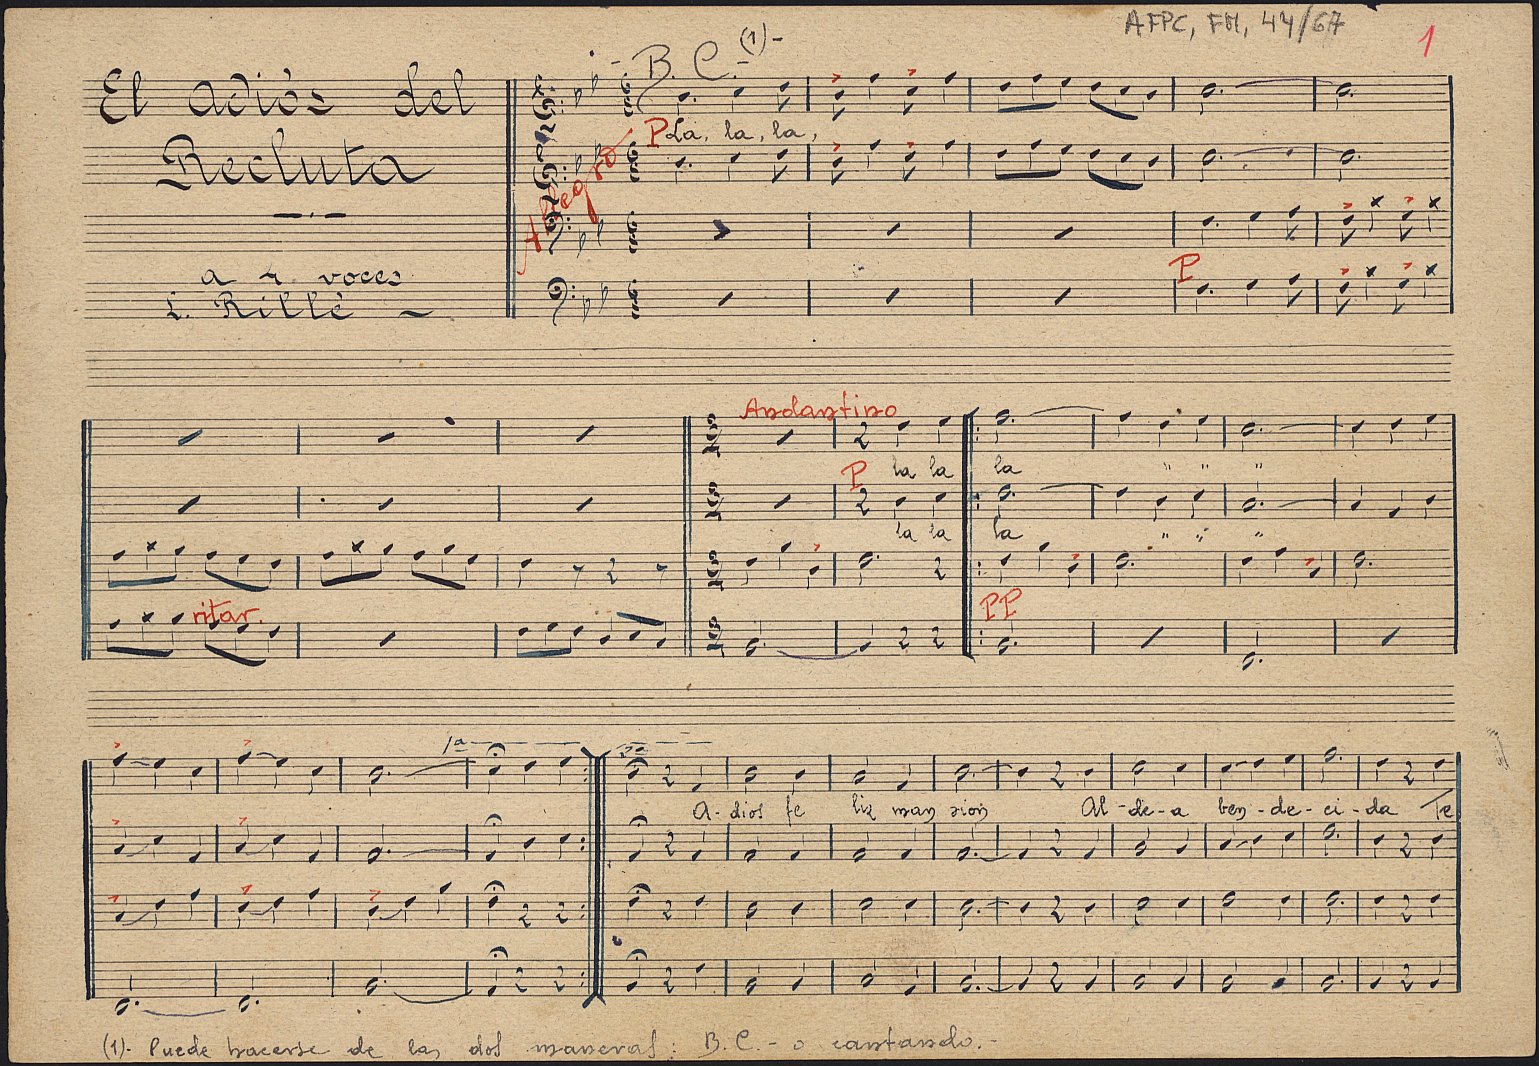 AFPC, FM, 44/67
1
El adiós del
Recluta
a 4 voces
L. Rillé
- B. C. - (1) -
Allegro
P La, la, la,
P
Andantino
P la la la " " "
la la la " " "
ritar.
PP
1ª
2ª
A - dios fe liz man sion Al - de - a ben - de - ci - da Te
(1)- Puede hacerse de las dos maneras: B. C. - o cantando. -